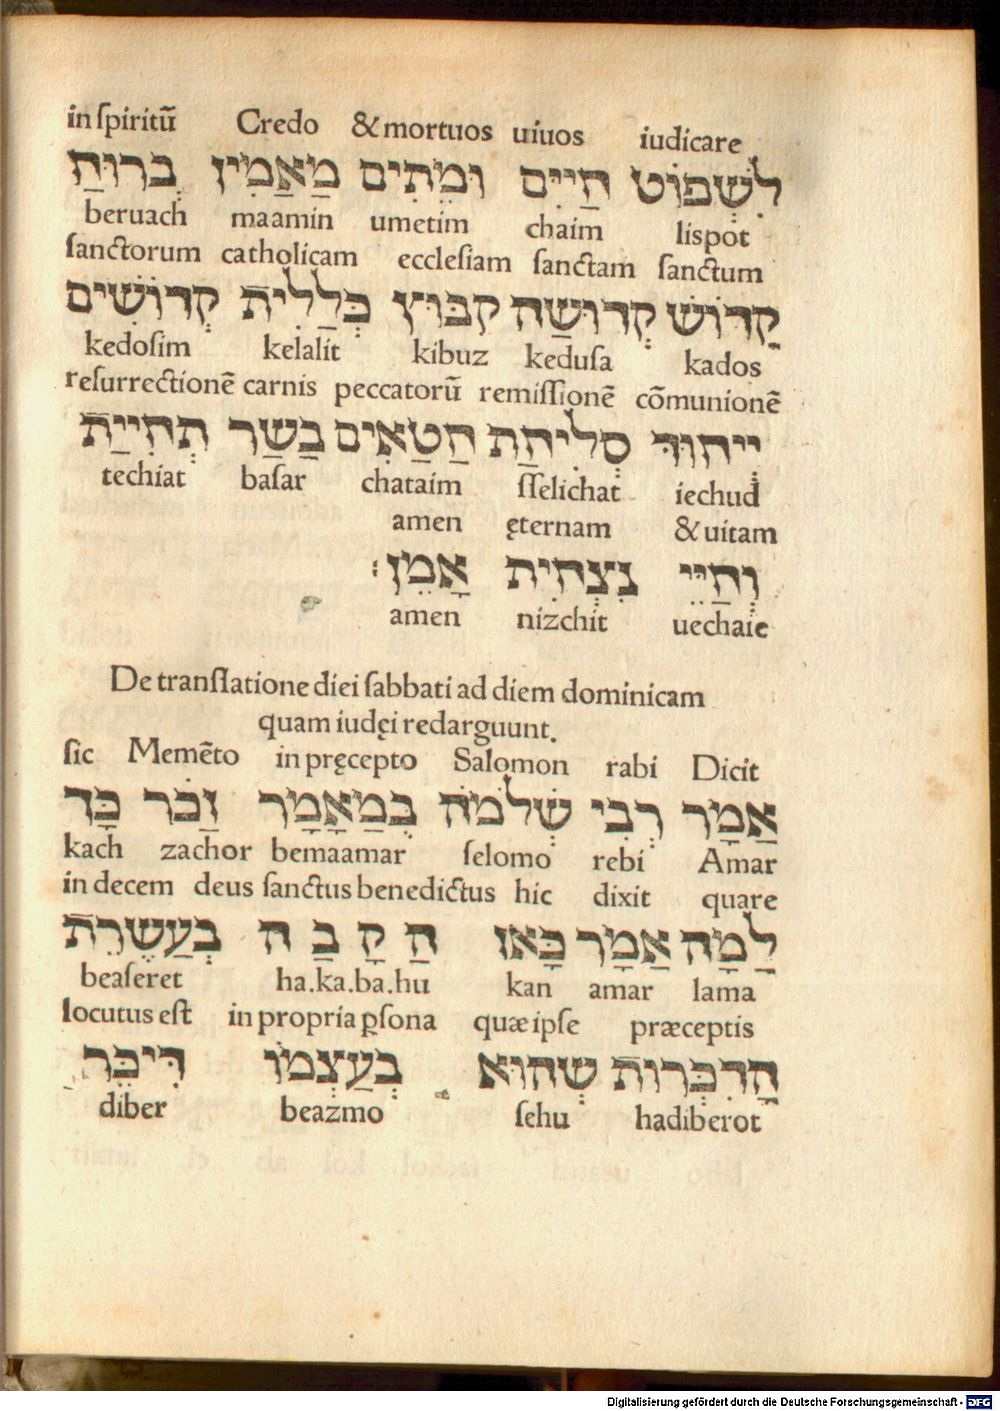 in ſpiritū Credo & mortuos uiuos iudicare
לִשְׁפּוֹט חַיִּים וּמֵתִים מַאֲמִין בְּרוּחַ
beruach maamin umetim chaim lispot
ſanctorum catholicam eccleſiam ſanctam ſanctum
קָדוֹשׁ קְדוּשַה קִבּוּץ כְּלָלִית קְדוֹשִׁים
kedoſim kelalit kibuz keduſa kados
reſurrectionē carnis peccatorū remiſſionē cōmunionē
יְיחוּד סְלִיחַת חַטַאִים בַּשַר תְּחִיַית
techiat baſar chataim ſſelichat iechud
amen ęternam & uitam
וְחַיֵּי נִצְחִית אָמֵן:
amen nizchit uechaie
De tranſlatione diei ſabbati ad diem dominicam
quam iudęi redarguunt.
ſic Memēto in pręcepto Salomon rabi Dicit
אַמָר רְבִי שְׁלֹמֹה בְּמַאָמָר זַכֹר כָּךְ
kach zachor bemaamar ſelomo rebi Amar
in decem deus ſanctus benedictus hic dixit quare
לָמָה אַמָר כָּאן הַ קָ בַ ה בְּעַשֶרֶת
beaſeret ha.ka.ba.hu kan amar lama
locutus eſt in propria ꝑſona quæ ipſe præceptis
הָדִבְּרוֹת שְהוּא בְּעַצְמוֹ דִּיבֵּר
diber beazmo ſehu hadiberot
Digitalisierung gefördert durch die Deutsche Forschungsgemeinschaft - DFG